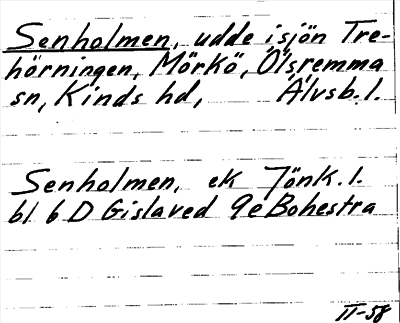 Senholmen, udde i sjön Tre-
hörningen, Mörkö, Ölsremma
sn, Kinds hd, Älvsb. l.
Senholmen, ek Jönk. l.
bl 6 D Gislaved 9e Bohestra
II-58